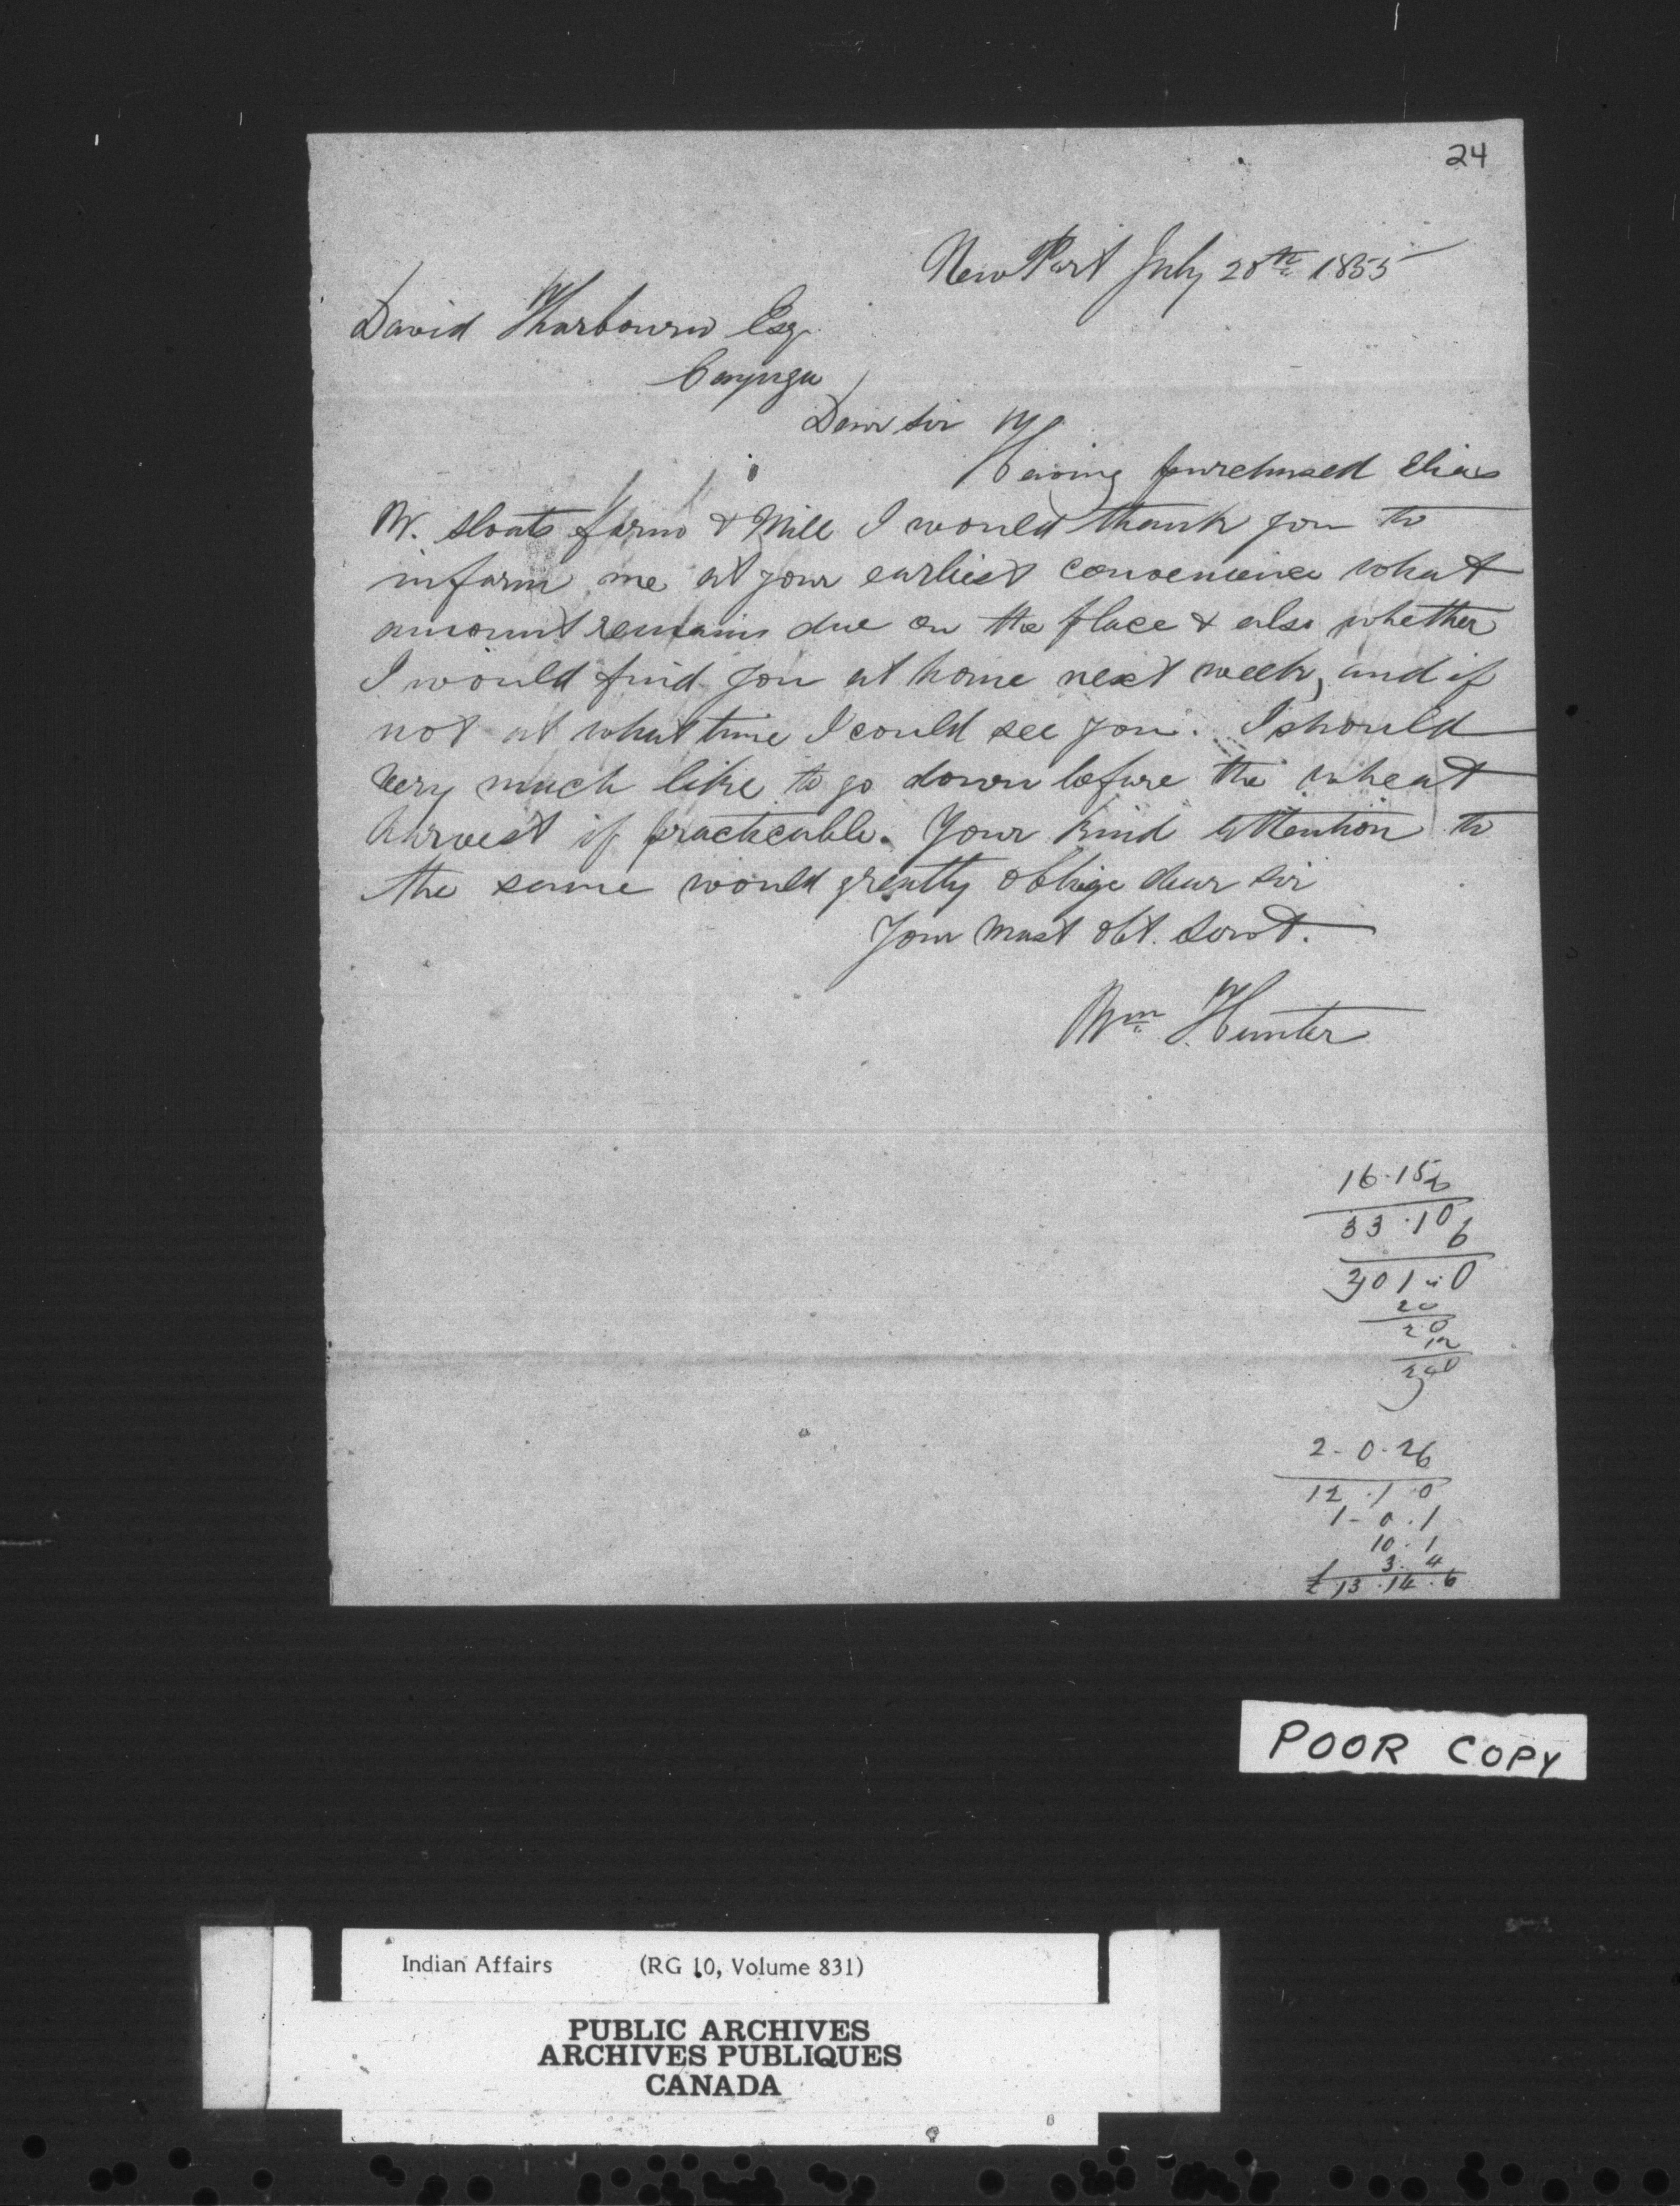 24
New Port July 28th 1855
David Tharbourn Esq.
Cayuga
Dear Sir
Having purchased Elias
W. Sloats farm & Mill I would thank you to
inform me at your earliest convenience what
amount remains due on the place & also whether
I would find you at home next week, and if
not at what time I could see you. I should
very much like to go down before the wheat
harvest if practicable. Your kind attention to
the same would greatly oblige dear sir
Your most obt. servt.
Wm Hunter
16.15
33.10
20
20
12
240
2-0-26
12.1.0
1-0.1
10.1
3.4
£13.14.6
POOR COPY
Indian Affairs (RG 10, Volume 831)
PUBLIC ARCHIVES
ARCHIVES PUBLIQUES
CANADA